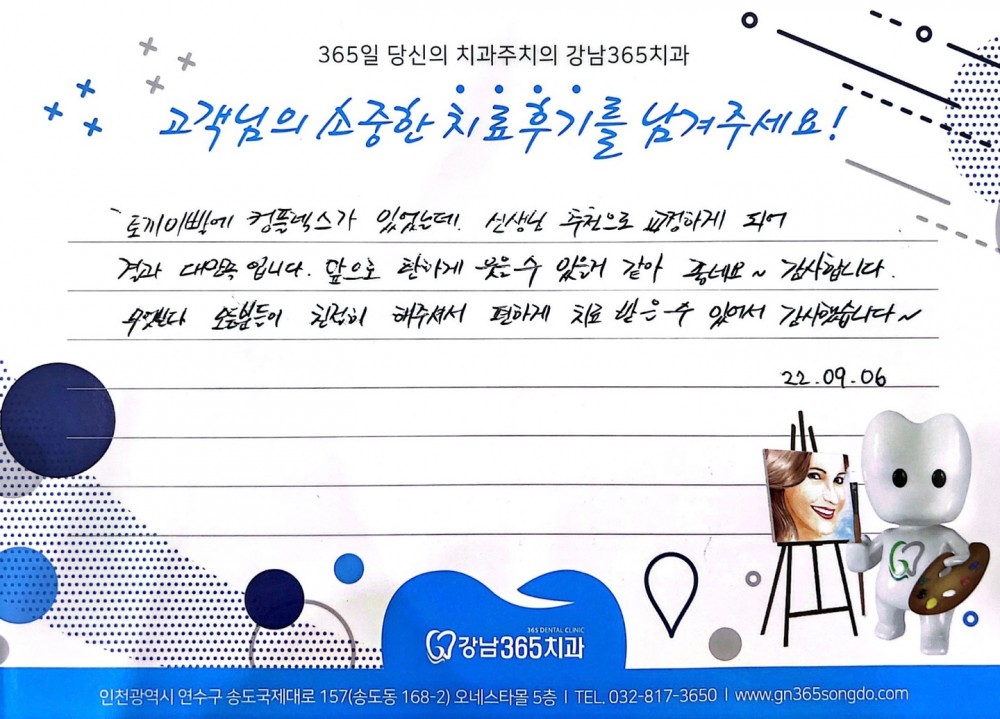 365일 당신의 치과주치의 강남365치과
고객님의 소중한 치료후기를 남겨주세요!
토끼이빨에 컴플렉스가 있었는데. 선생님 추천으로 교정하게 되어
결과 대만족 입니다. 앞으로 편하게 웃을수 있을거 같아 좋네요~ 감사합니다.
무엇보다 모든분들이 친절히 해주셔서 편하게 치료 받을수 있어서 감사했습니다~
22.09.06
365 DENTAL CLINIC
강남365치과
인천광역시 연수구 송도국제대로 157(송도동 168-2) 오네스타몰 5층 | TEL. 032-817-3650 | www.gn365songdo.com